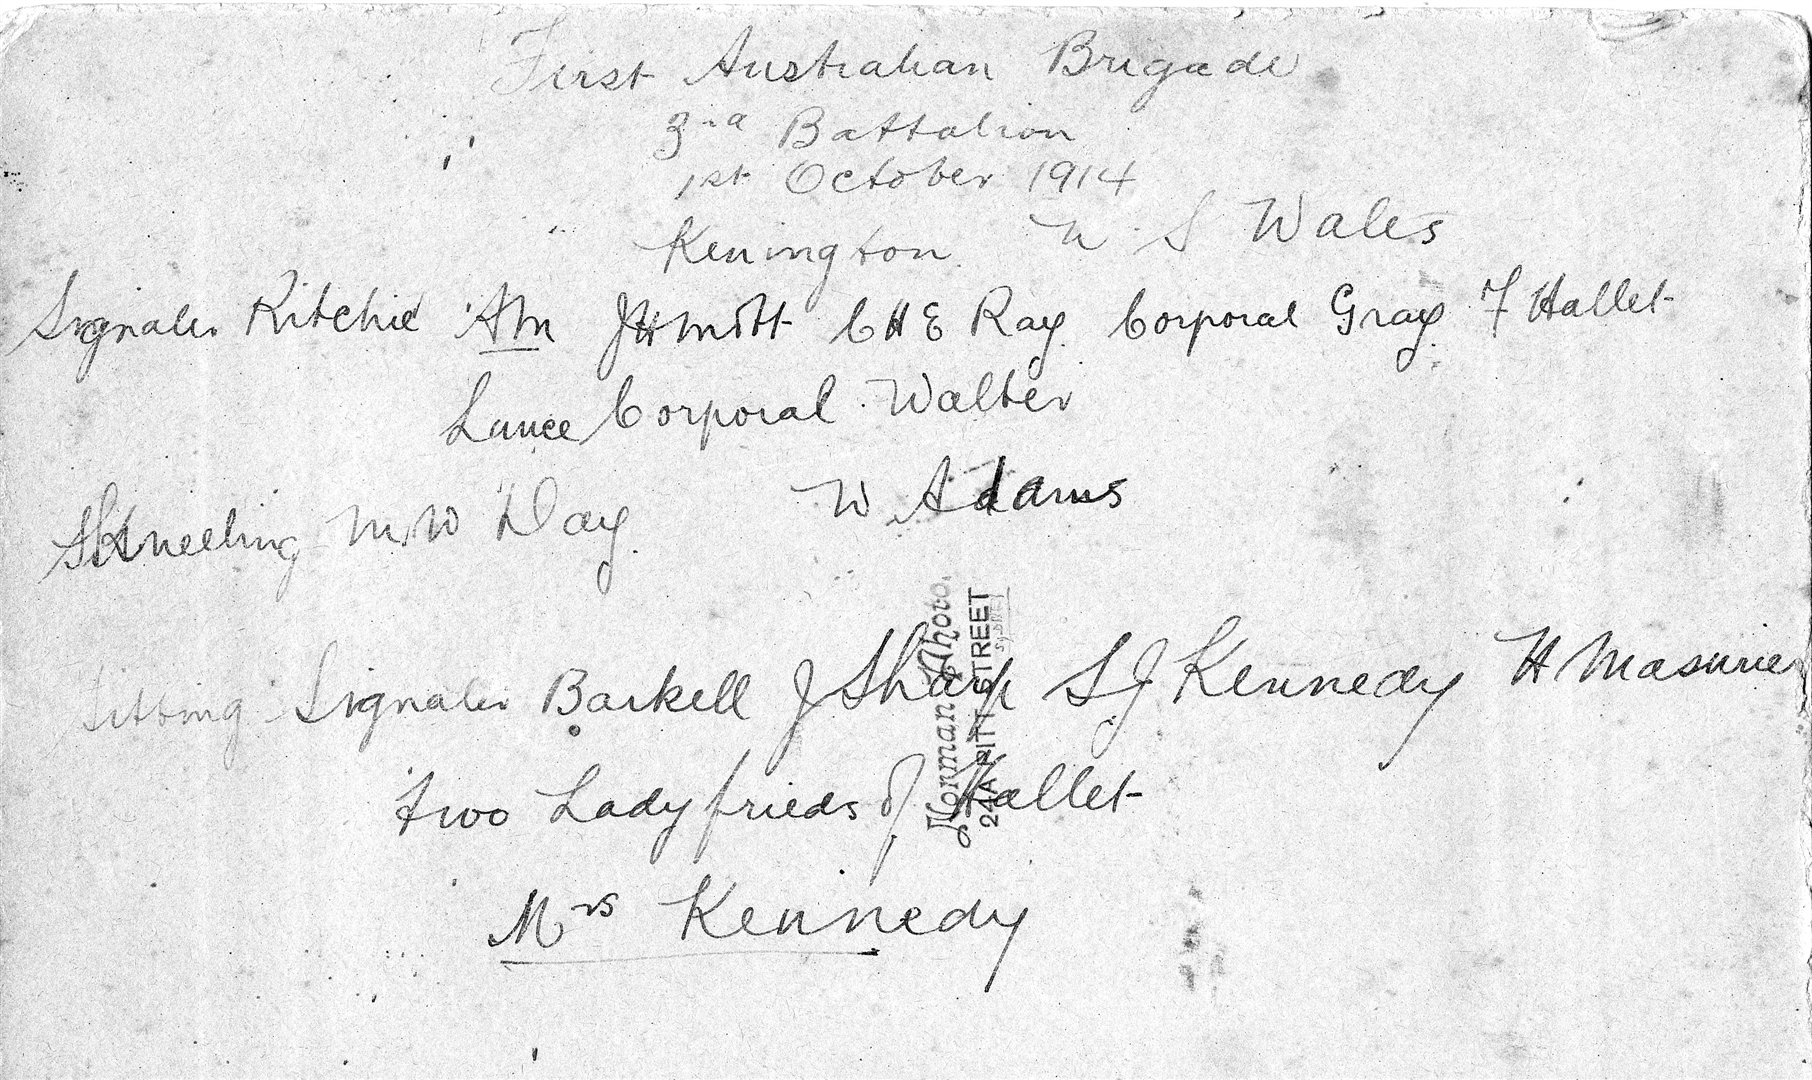 First Australian Brigade
3rd Battalion
1st October 1914
Kenington N. S Wales
Signaler Ritchie AM JH Mott C H E Ray. Corporal Gray. F Hallet
Lance Corporal Walter
Kneeling M W Day. W Adams
Sitting Signaler Barkell J Sharp S J Kennedy H Masurier
two Lady frieds of Hallet
Mrs Kennedy
Norman Photo.
24A PITT STREET
SYDNEY